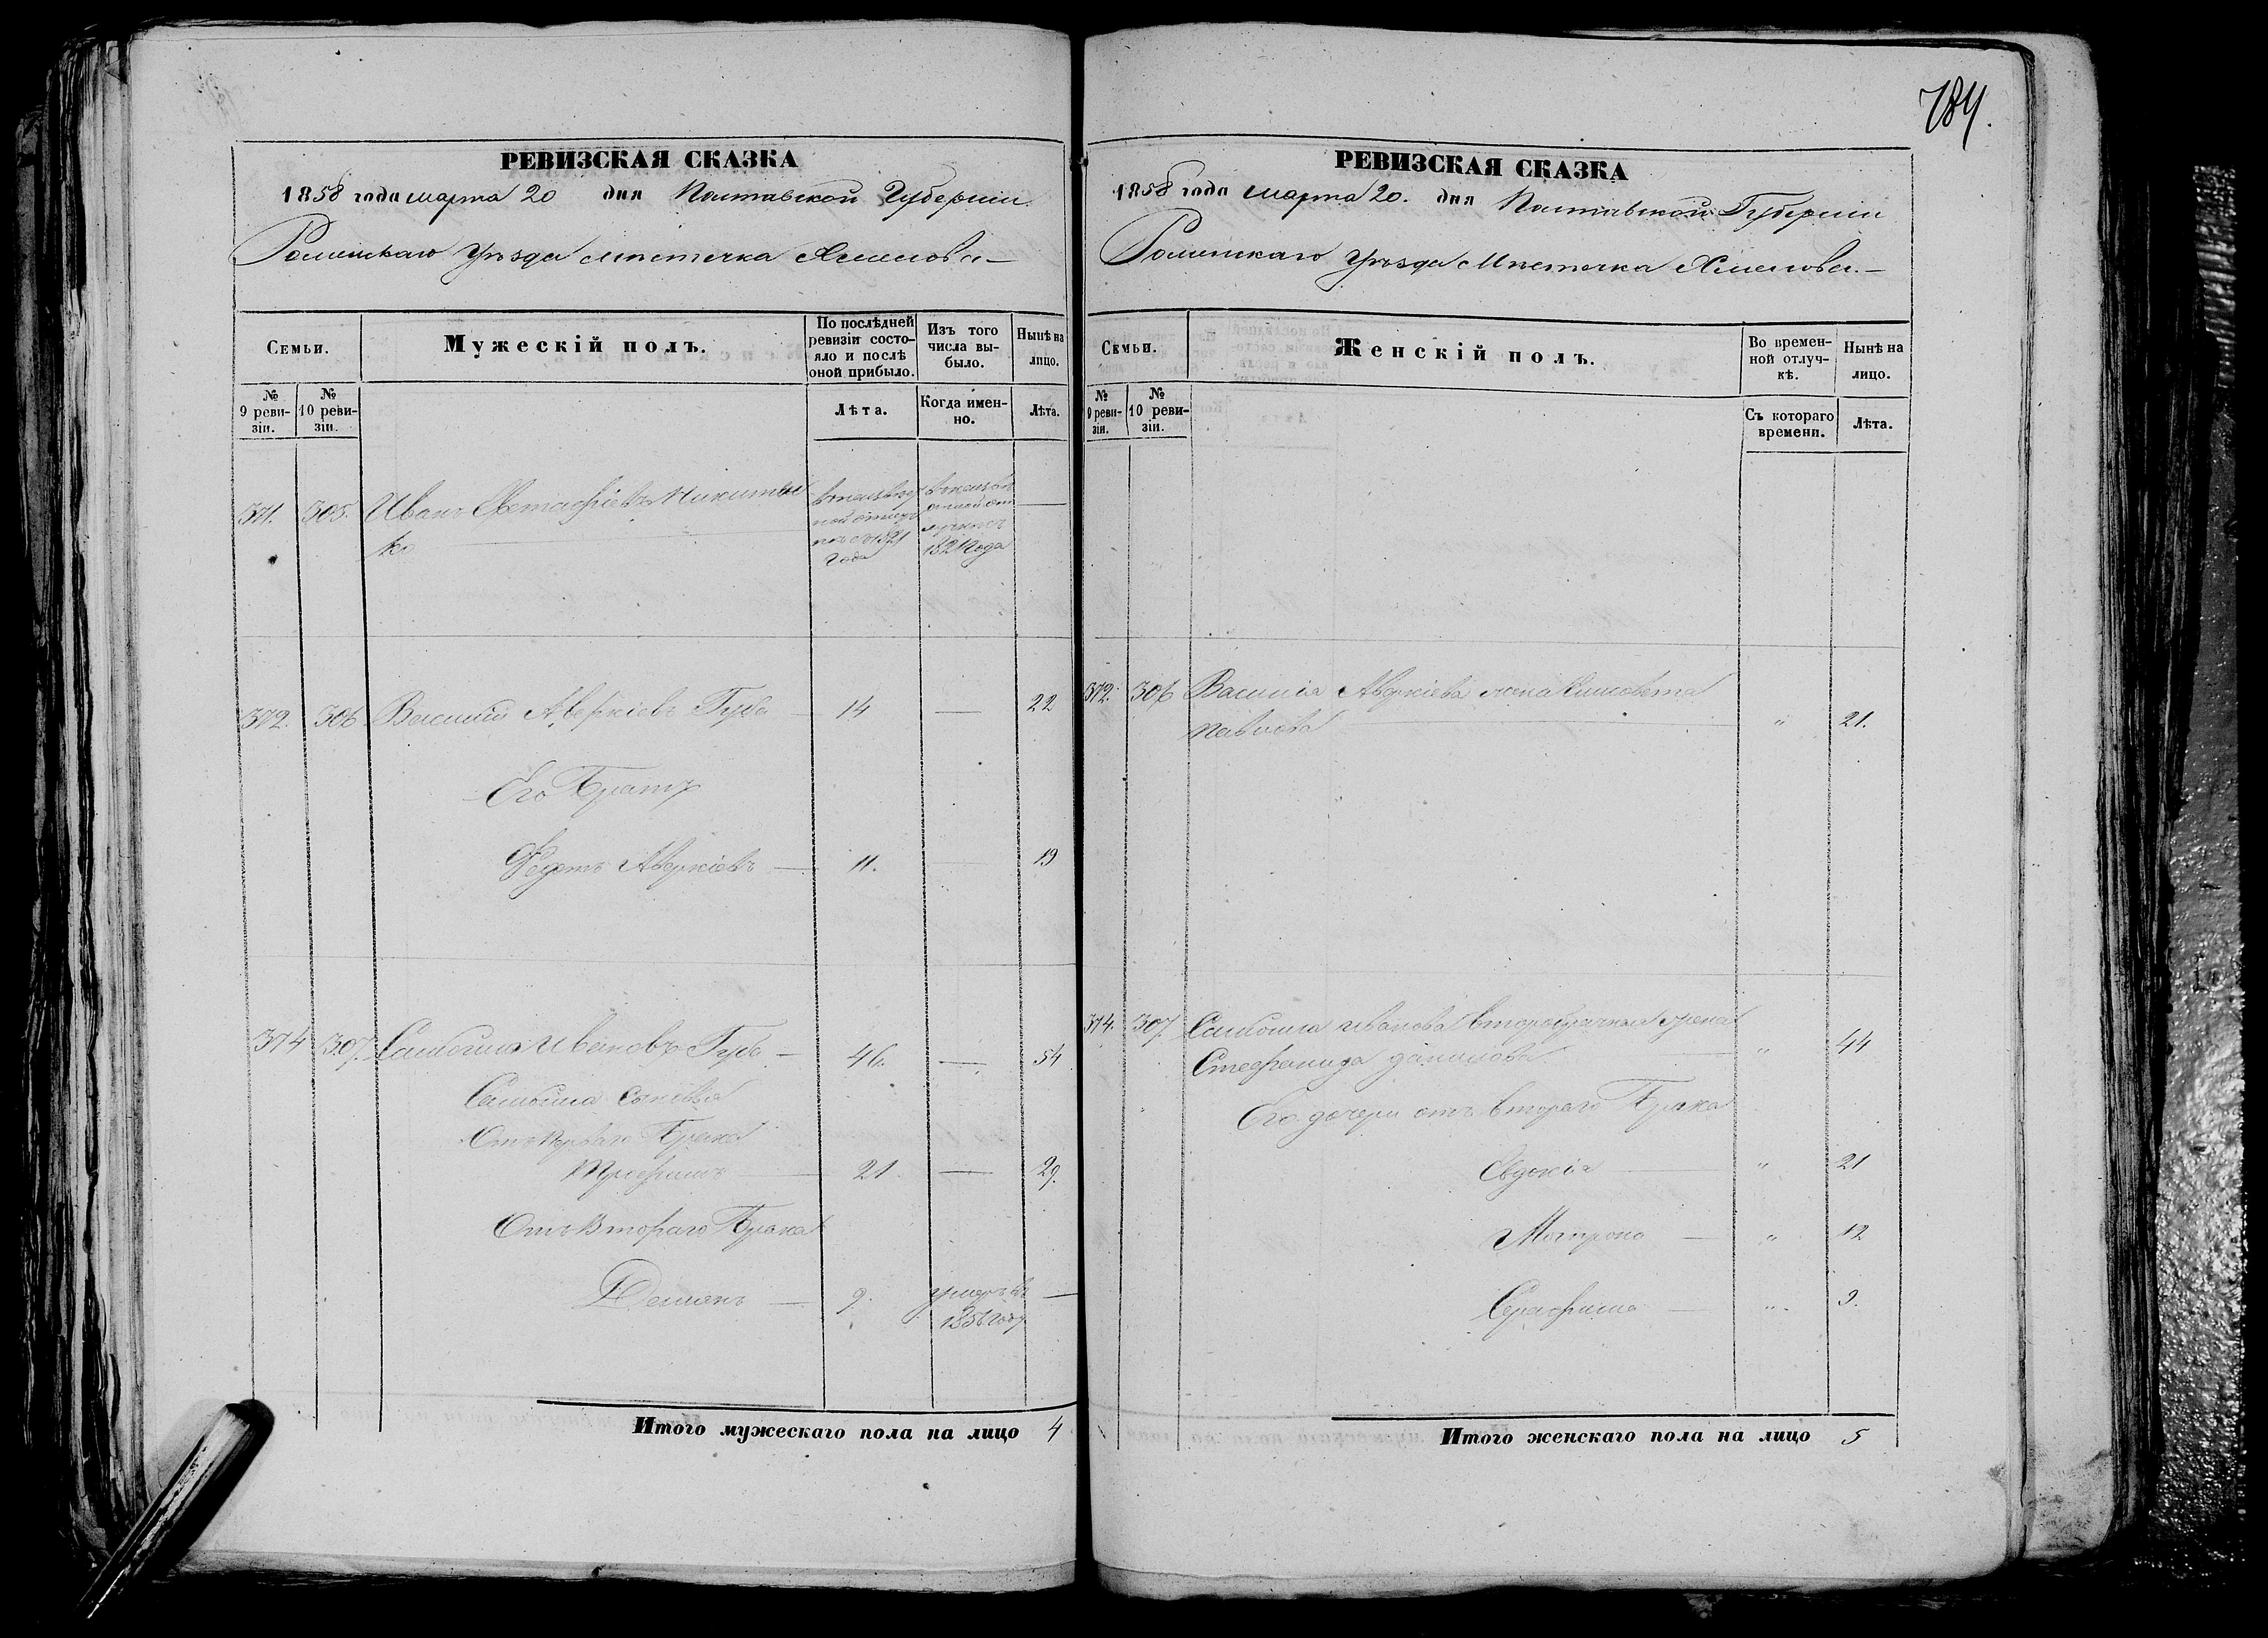 784.
РЕВИЗСКАЯ СКАЗКА
1858 года марта 20 дня Полтавской Губерніи
Роменскаго Уѣзда мѣстечка Хмелова
Семьи.
Мужескій полъ.
По послѣдней ревизіи состояло и послѣ оной прибыло.
Изъ того числа выбыло.
Нынѣ на лицо.
№ 9 ревизіи.
№ 10 ревизіи.
Лѣта.
Когда именно.
Лѣта.
371. 305. Иванъ Евстафіевъ Никитен
ко
1821 года
372. 306 Василій Аверкіевъ Губа 14 — 22
Его Братъ
Федотъ Аверкіевъ — 11. 19
374 307. Самойла Ивановъ Губа — 46. — 54
Самойла сыновья
Отъ перваго Брака
Трофимъ — 21 — 29.
Отъ Втораго Брака
Демянъ — 9. умеръ въ —
1856 году
Итого мужескаго пола на лицо 4
РЕВИЗСКАЯ СКАЗКА
1858 года марта 20. дня Полтавской Губерніи
Роменскаго Уѣзда Мѣстечка Хмелова.—
Семьи.
Женскій полъ.
Во временной отлучкѣ.
Нынѣ на лицо.
№ 9 ревизіи.
№ 10 ревизіи.
Съ котораго времени.
Лѣта.
372. 306 Василія Аверкіева жена Елисавета
Павлова " 21.
374. 307. Самойла Иванова второбрачная жена
Стефанида Данилова " 44
Его дочери отъ втораго Брака
Евдокія " 21
Мотрона — " 12
Серафима — " 9.
Итого женскаго пола на лицо 5